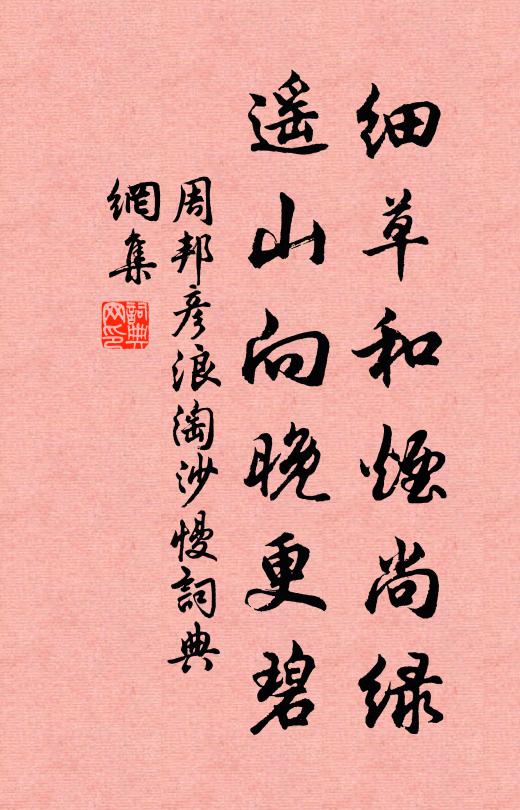 细草和烟尚绿
遥山向晚更碧
周邦彦浪淘沙慢詞典
網集
詞典
网印